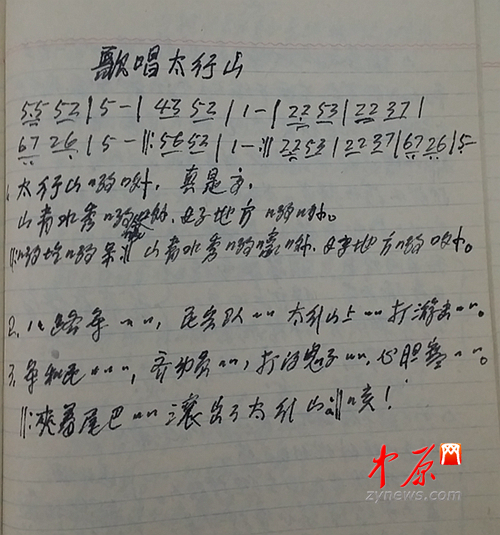 歌唱太行山
55 52 | 5 - | 43 52 | 1 - | 22 53 | 22 37 |
67 26 | 5 - ‖: 56 52 | 1 - :‖ 22 53 | 22 37 | 67 26 | 5 -
1. 太行山 哟 真是
山青水秀 好地方
山青水秀 好地方
2. 八路军 "", 民兵队 "" 太行山上 "" 打游击 ""。
3. 军和民 "", 齐动员 "", 打得鬼子 "", 心胆寒 ""。
‖: 夹着尾巴 "" 滚出了太行山 :‖ 咳!
中原网
zynews.com